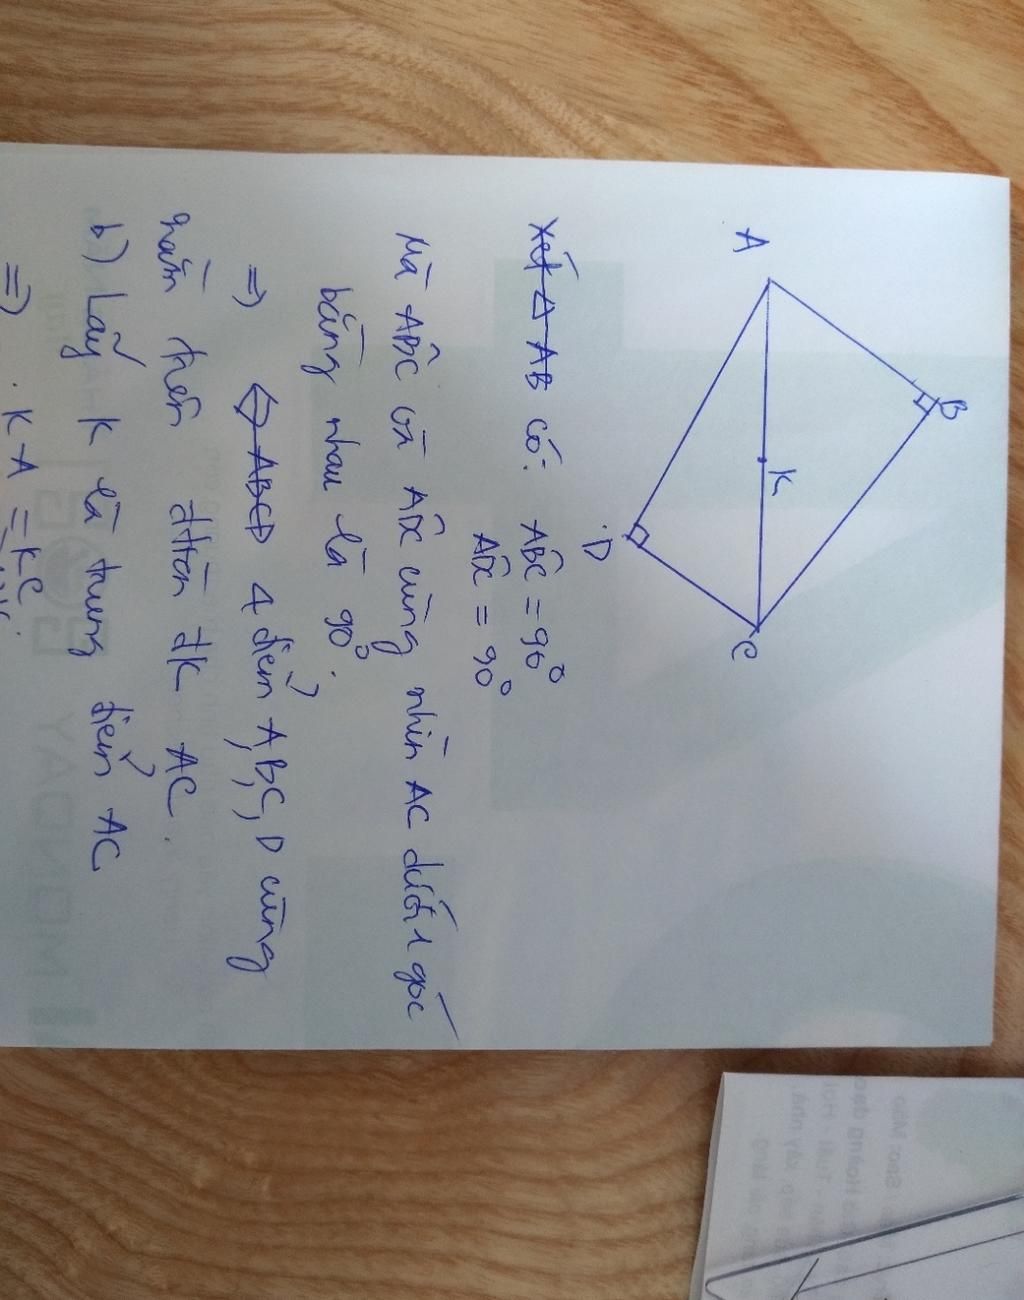 A
B
K
D
C
Xét △ AB có: ABC = 90°
ADC = 90°
Mà ABC và ADC cùng nhìn AC dưới 1 góc
bằng nhau là 90°.
=> ABCD 4 điểm A, B, C, D cùng
nằm trên đtròn đk AC.
b) Lấy K là trung điểm AC
=> KA = KC